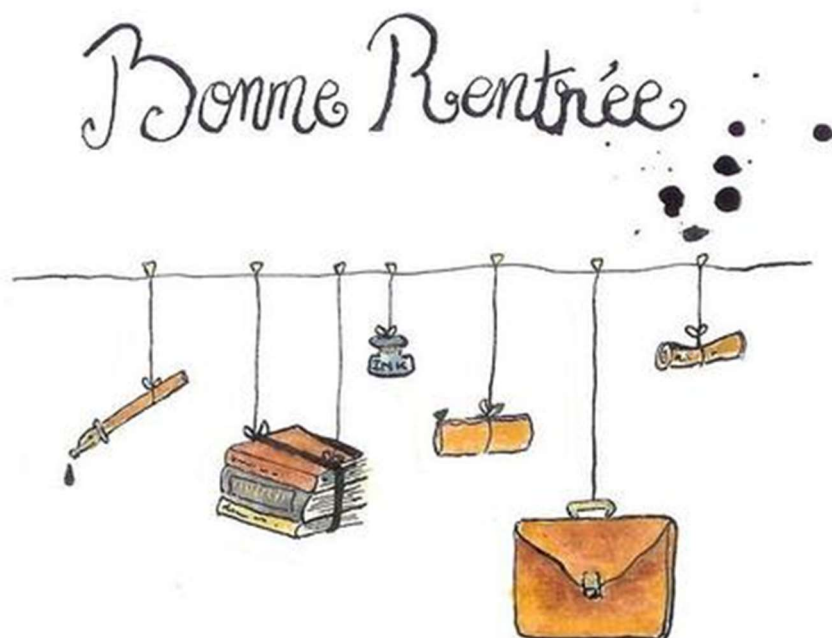 Bonne Rentrée
INK